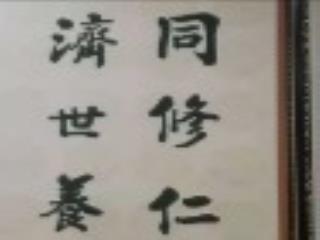 同修仁
濟世養